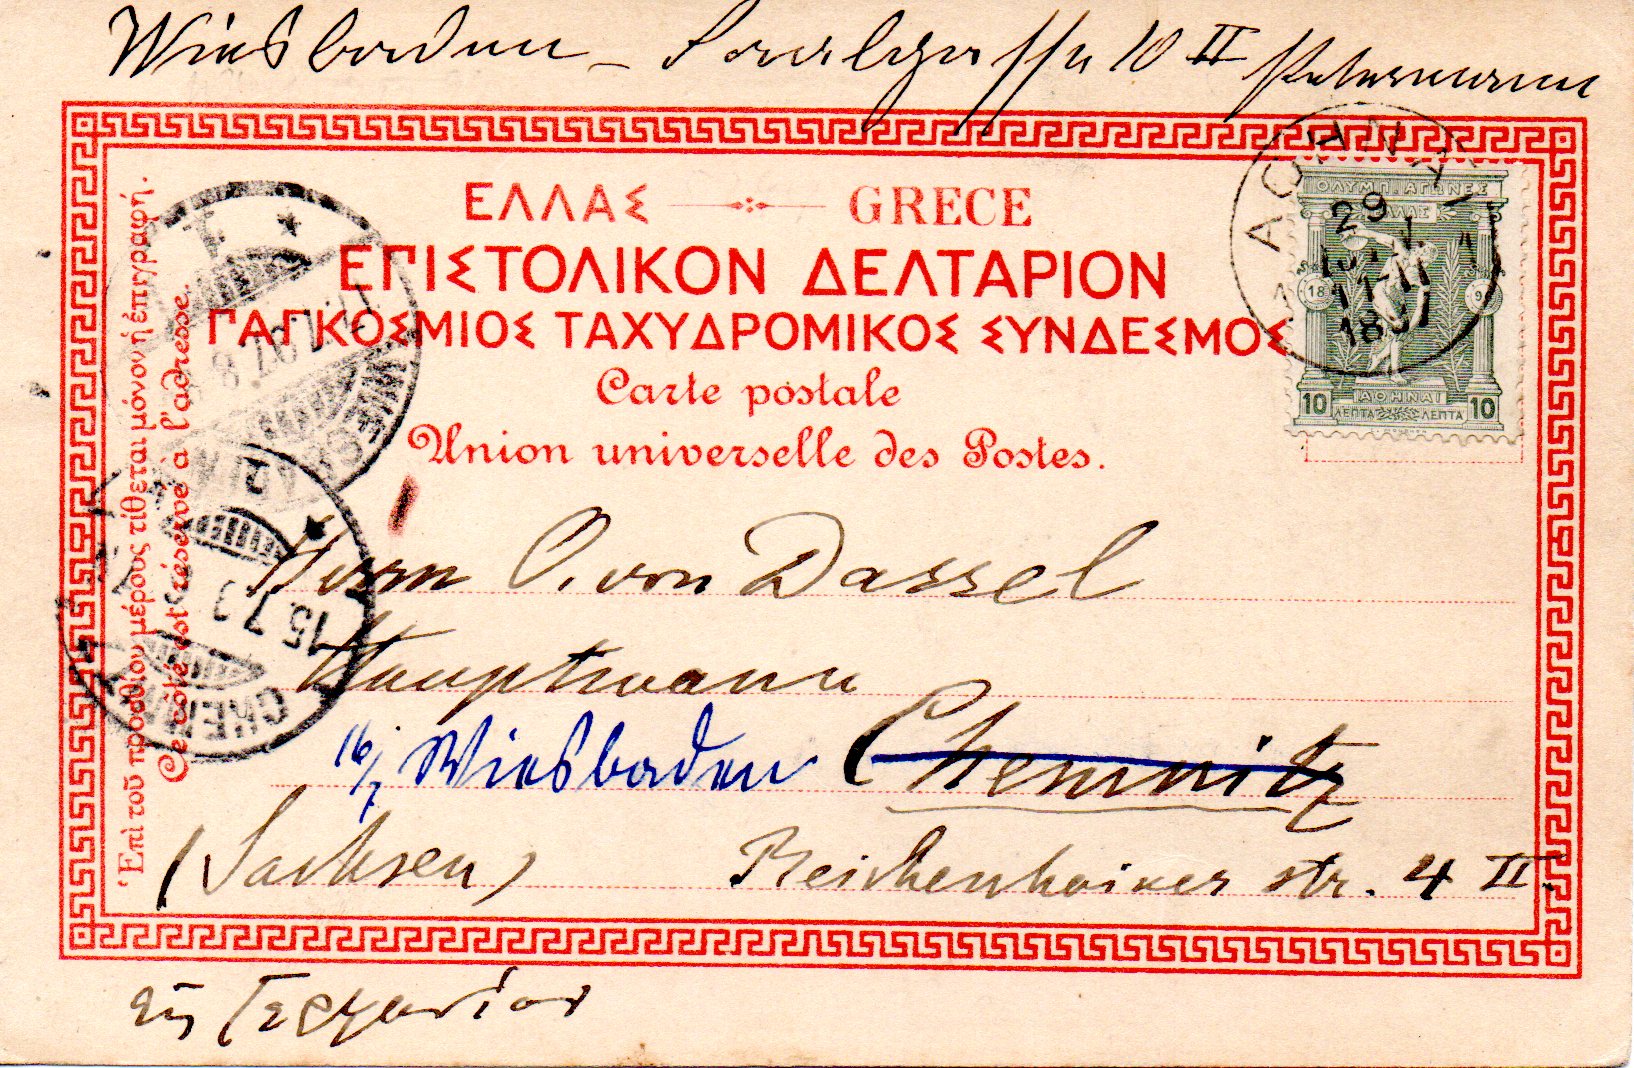 Wiesbaden – Saalgasse 10 II
ΕΛΛΑΣ GRECE
ΕΠΙΣΤΟΛΙΚΟΝ ΔΕΛΤΑΡΙΟΝ
ΠΑΓΚΟΣΜΙΟΣ ΤΑΧΥΔΡΟΜΙΚΟΣ ΣΥΝΔΕΣΜΟΣ
Carte postale
Union universelle des Postes.
Ἐπὶ τοῦ προσθίου μέρους τίθεται μόνον ἡ ἐπιγραφή.
Ce côté est réservé à l'adresse.
ΑΘΗΝΑΙ
29
ΟΛΥΜΠ. ΑΓΩΝΕΣ
18 96
ΑΘΗΝΑΙ
10 ΛΕΠΤΑ ΛΕΠΤΑ 10
Herrn O. von Dassel
Hauptmann
16/7 Wiesbaden Chemnitz
(Sachsen) Reichenhainer str. 4 II.
15.7.
CHEMNITZ
εἰς Γερμανίαν